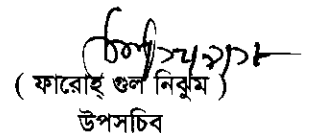 ( ফারোহ্ গুল নিঝুম )
উপসচিব